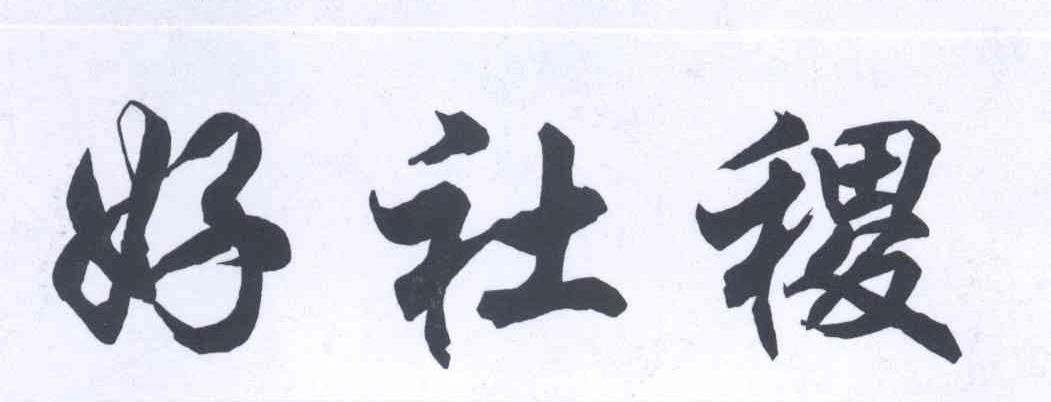 好社稷